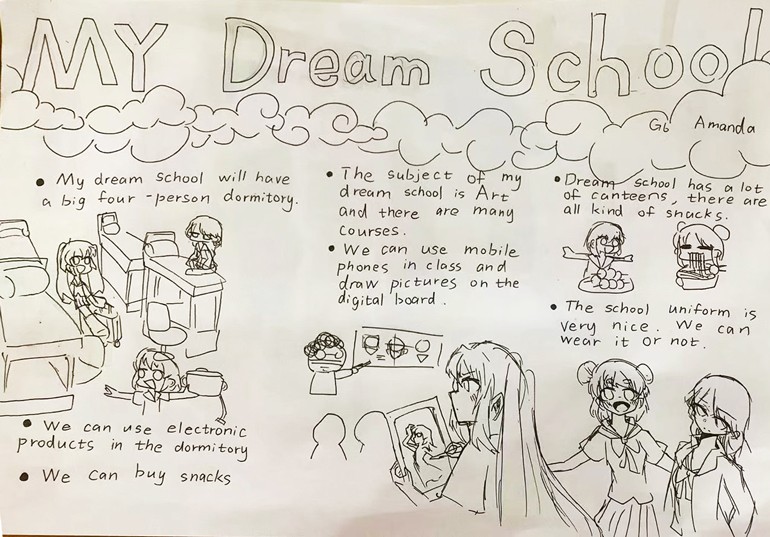 MY Dream School
G6 Amanda
• My dream school will have
a big four-person dormitory.
• We can use electronic
products in the dormitory
• We can buy snacks
• The subject of my
dream school is Art
and there are many
courses.
• We can use mobile
phones in class and
draw pictures on the
digital board.
• Dream school has a lot
of canteens, there are
all kind of snacks.
• The school uniform is
very nice. We can
wear it or not.